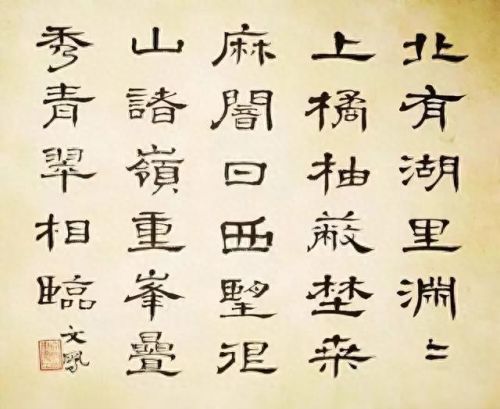 北有湖里淵〻
上橘柚蔽埜桒
麻闇日西望佷
山諸嶺重峯疊
秀青翠相臨
文